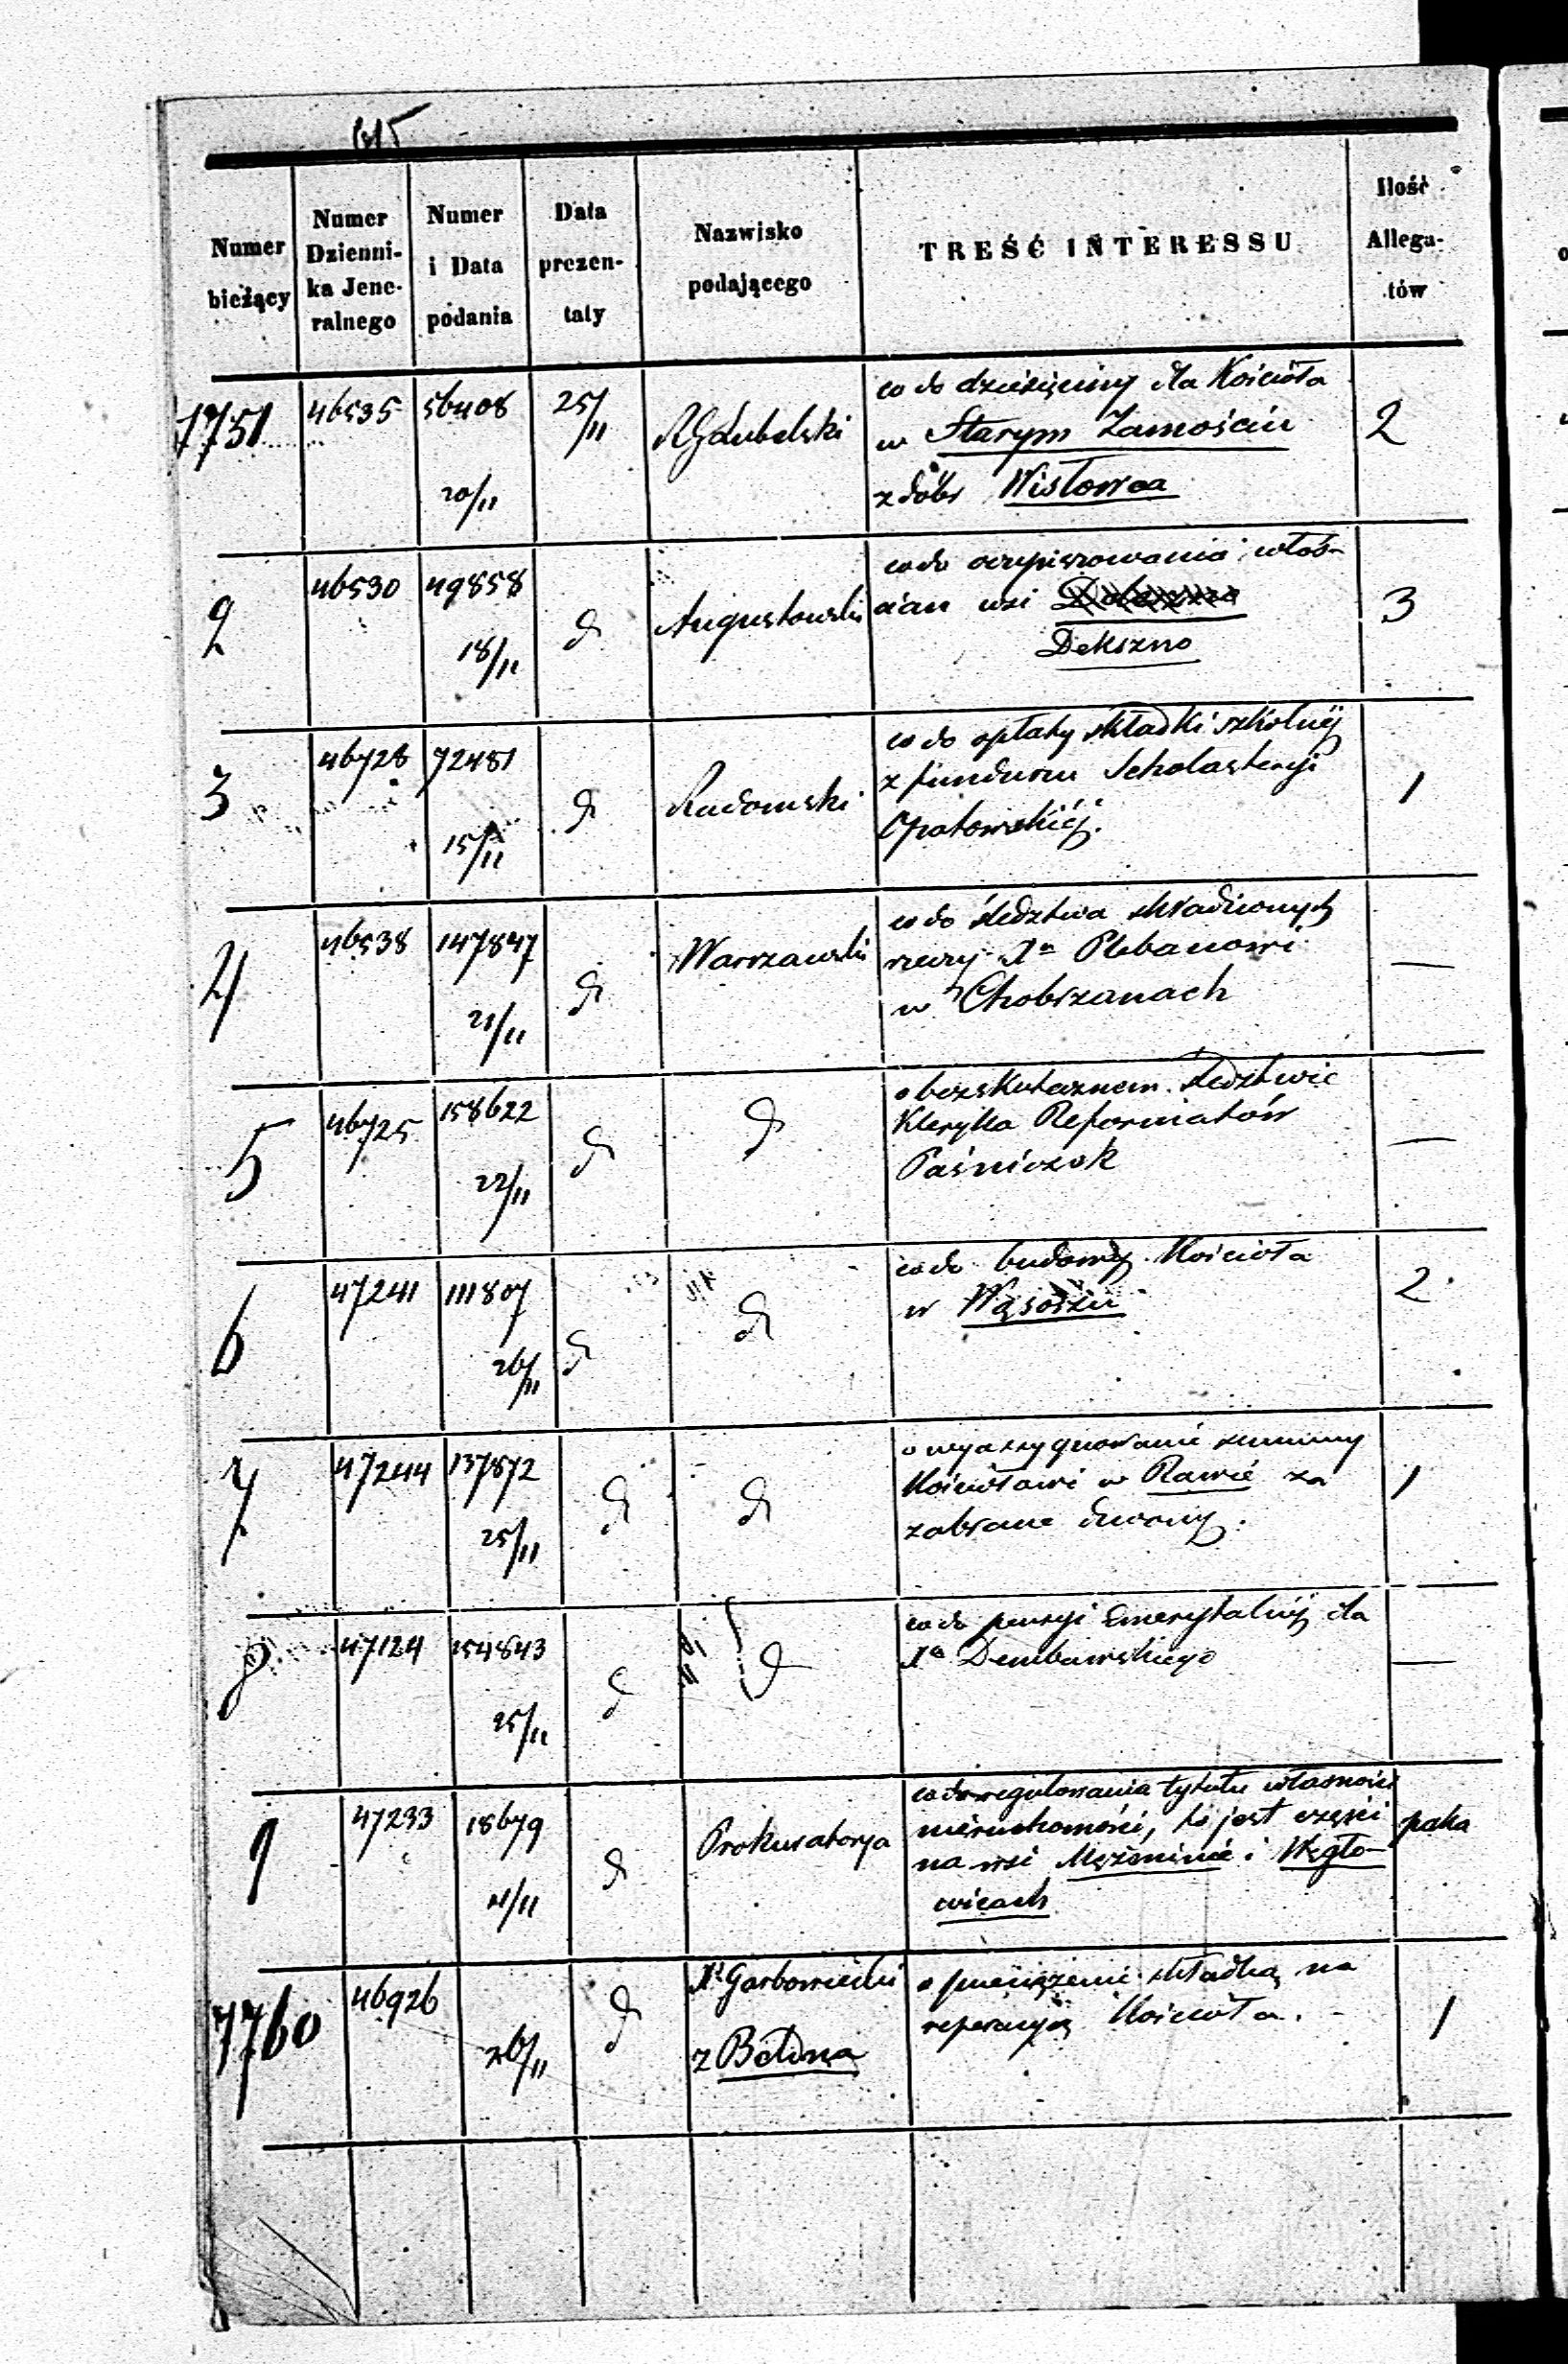 615
Numer bieżący | Numer Dzienni-ka Jene-ralnego | Numer i Data podania | Data prezen-taty | Nazwisko podającego | TREŚĆ INTERESSU | Ilość Allega-tów
7751 | 46535 | 56408 | 25/11 | RGLubelski | co do dziesięciny dla Kościoła | 2
20/11 | w Starym Zamościu
z dóbr Wisłowca
2 | 46530 | 49858 | d | Augustowski | co do oczynszowania włoś- | 3
18/11 | cian wsi
Dekszno
3 | 46728 | 72481 | d | Radomski | co do opłaty składki szkolnéj | 1
15/11 | z funduszu Scholasteryi
Opatowskiéj.
4 | 46538 | 147847 | d | Warszawski | co do śledztwa skradzionych | —
21/11 | rzeczy Xu Plebanowi
w Chobrzanach
5 | 46725 | 158622 | d | d | o bezskutecznem śledztwie | —
22/11 | Kleryka Reformatów
Paśniczek
6 | 47241 | 111807 | d | d | co do budowy Kościoła | 2
26/11 | w Wąsoszu
7 | 47244 | 137872 | d | d | o wyassygnowanie summy | 1
25/11 | Kościołowi w Rawie za
zabrane dzwony.
8 | 47124 | 154843 | d | d | co do pensyi Emerytalnéj dla | —
25/11 | Xa Dembowskiego
9 | 47233 | 18679 | d | Prokuratorya | co do uregulowania tytułu własności | paka
4/11 | nieruchomości, to jest części
na wsi Mężeninie i Węgło-
wicach
7760 | 46926 | 26/11 | d | X Garbowiecki | o przeciążenie składką na | 1
z Bełdna | reperacyą Kościoła.